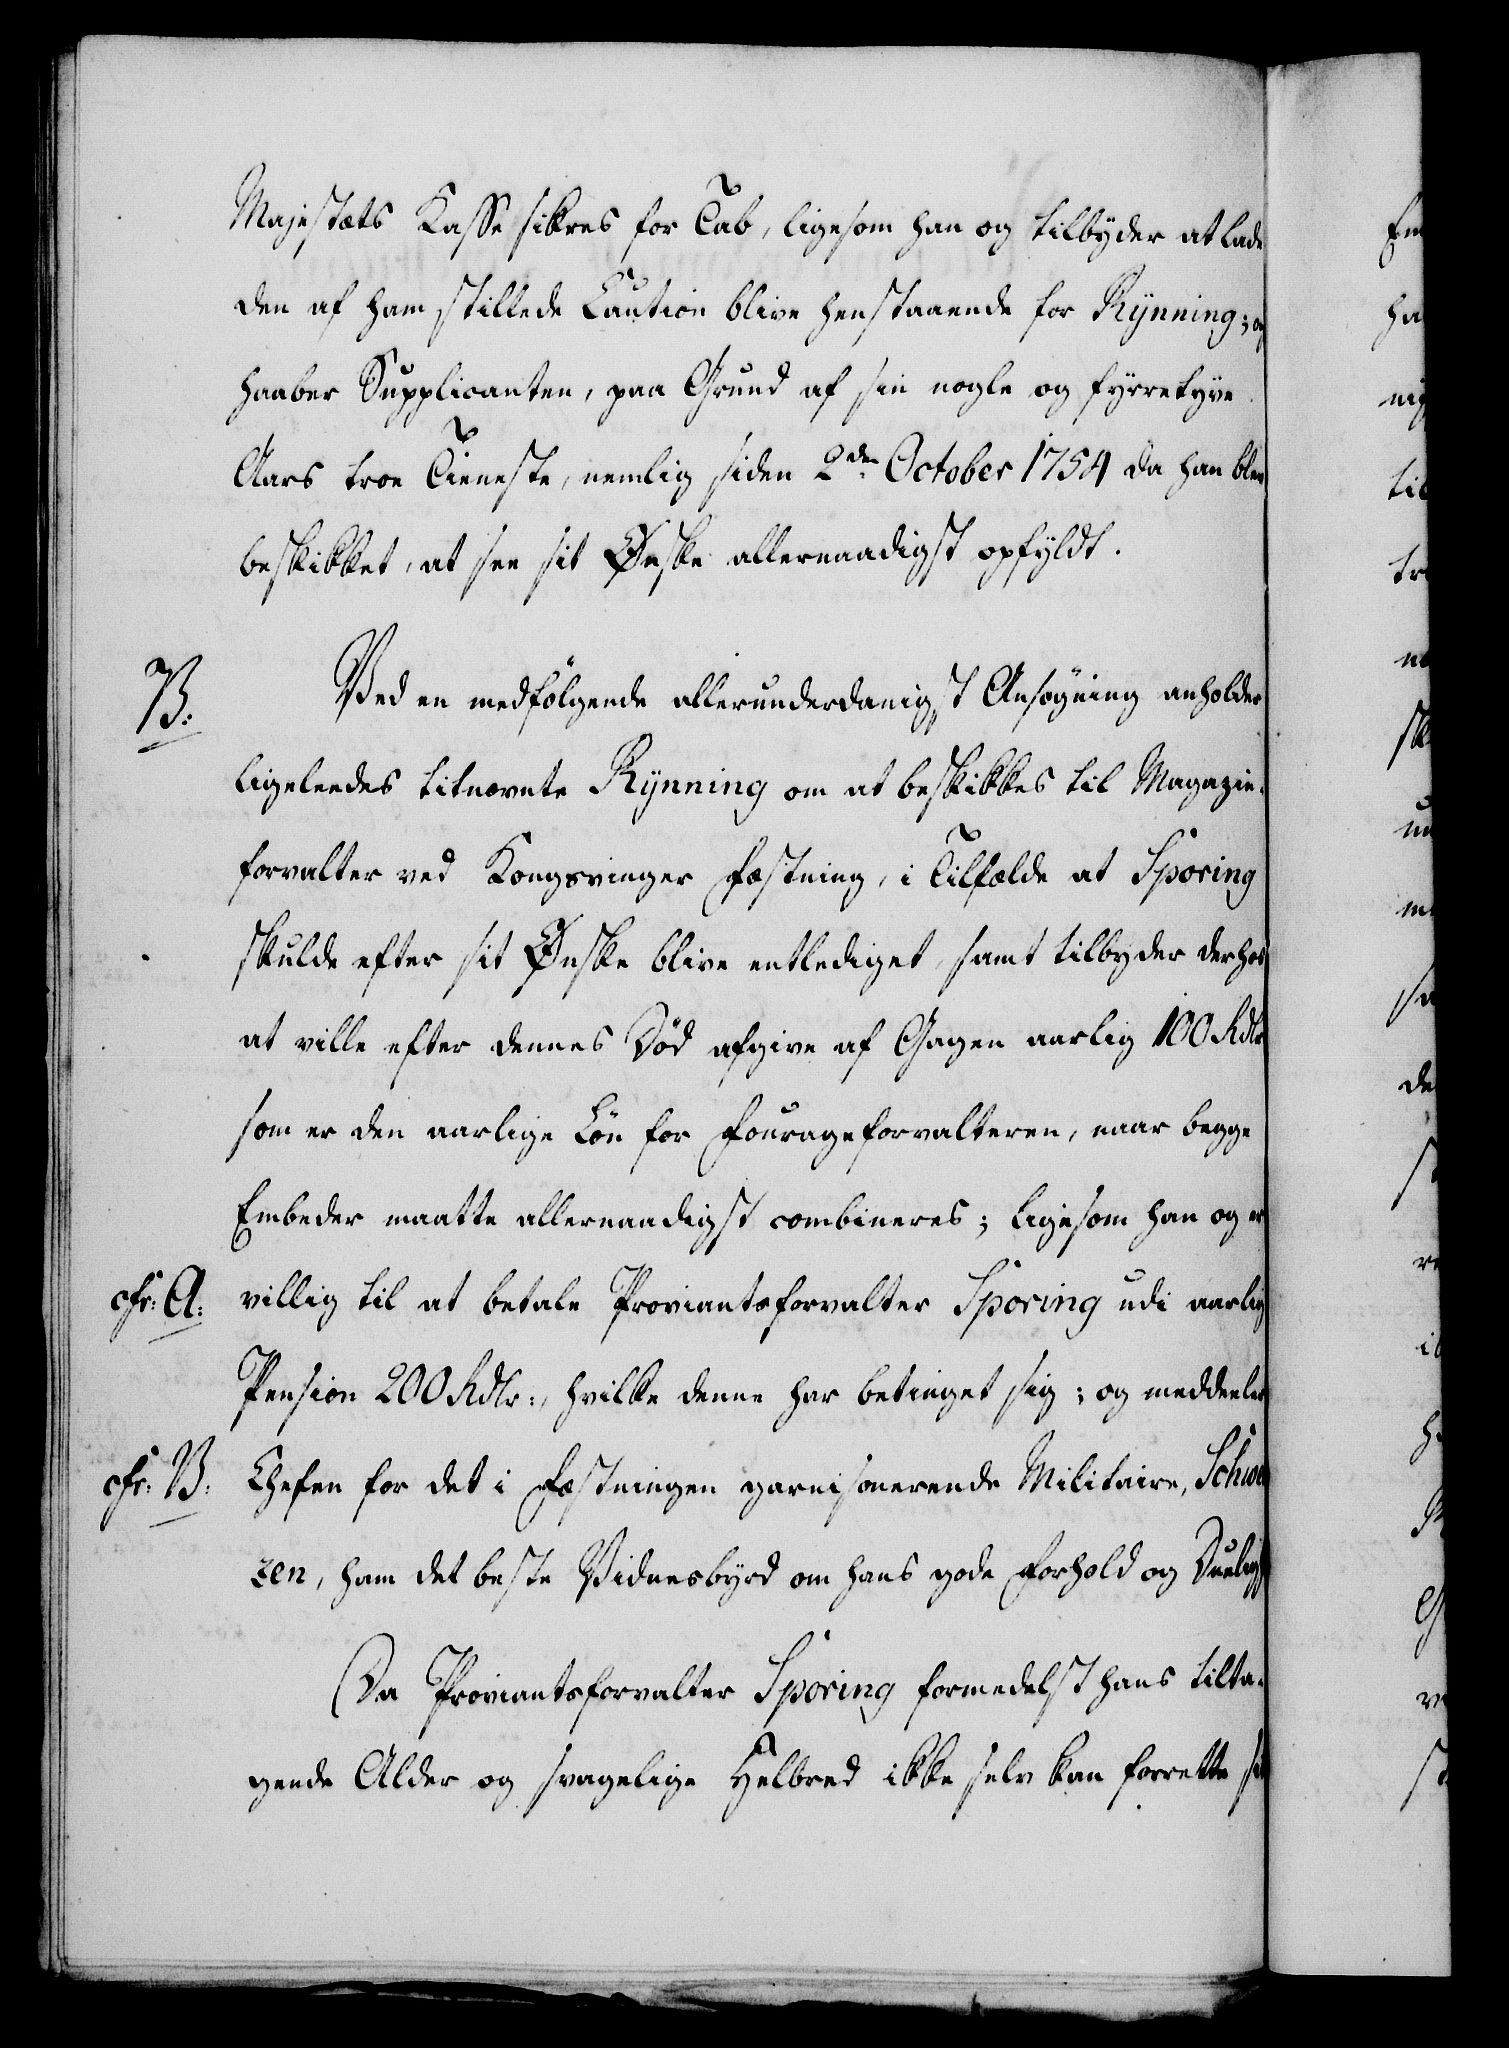 Majestæts Kasse sikres for Tab, ligesom han og tilbyder at lade
den af ham stillede Caution blive henstaaende for Rynning; og
haaber Supplicanten, paa Grund af sin nogle og fyrretyve
Aars troe Tieneste, nemlig siden 2den October 1754 da han blev
beskikket, at see sit Ønske allernaadigst opfyldt.
B: Ved en medfølgende allerunderdanigst Ansøgning anholder
ligeledes titnævnte Rynning om at beskikkes til Magazin-
forvalter ved Kongsvinger Fæstning, i Tilfælde at Sporing
skulde efter sit Ønske blive entlediget, samt tilbyder derhos
at ville efter dennes Død afgive af Gagen aarlig 100 Rdlr
som er den aarlige Løn for Fourageforvalteren, naar begge
Embeder maatte allernaadigst combineres; ligesom han og er
cfr: A: villig til at betale Proviantsforvalter Sporing udi aarlig
Pension 200 Rdlr:, hvilke denne har betinget sig; og meddeeler
cfr: B: Chefen for det i Fæstningen garnisonerende Militaire,
zen, ham det beste Vidnesbyrd om hans gode Forhold og
Da Proviantsforvalter Sporing formedelst hans tilta-
gende Alder og svagelige Helbred ikke selv kan forrette